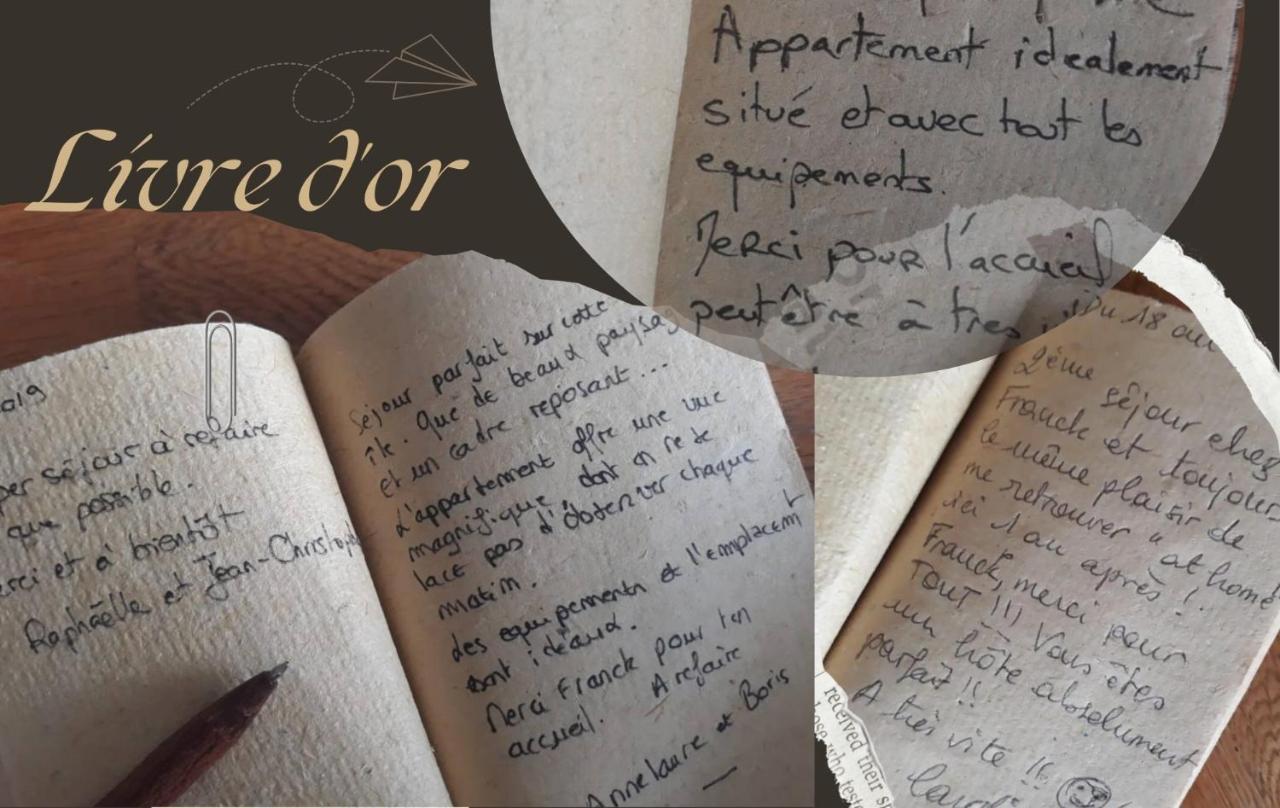 Livre d'or
Appartement idealement
situé et avec tout les
equipements.
Merci pour l'accueil
peut être à tres
2019
séjour à refaire
que possible.
et à bientôt
Raphaëlle et Jean-Christophe
Séjour parfait sur votre
île. Que de beaux paysag
et un cadre reposant...
L'appartement offre une vue
magnifique dont on ne se
lace pas d'observer chaque
matin.
des equipements et l'emplacemt
sont idéaux.
Merci Franck pour ton
accueil. A refaire
Anne laure et Boris
Du 18 au
2ème séjour chez
Franck et toujours
le même plaisir de
me retrouver "at home"
ici 1 an après !
Franck, merci pour
TOUT !!! Vous êtes
un hôte absolument
parfait !!
A très vite !!
received their s
hose who teste